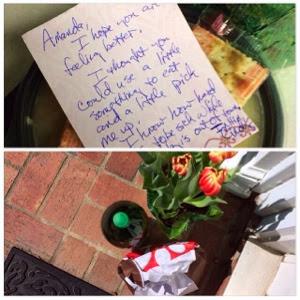 Amanda,
I hope you are
feeling better.
I thought you
could use a little
something to eat
and a little pick
me up.
I know how hard
to be such a little